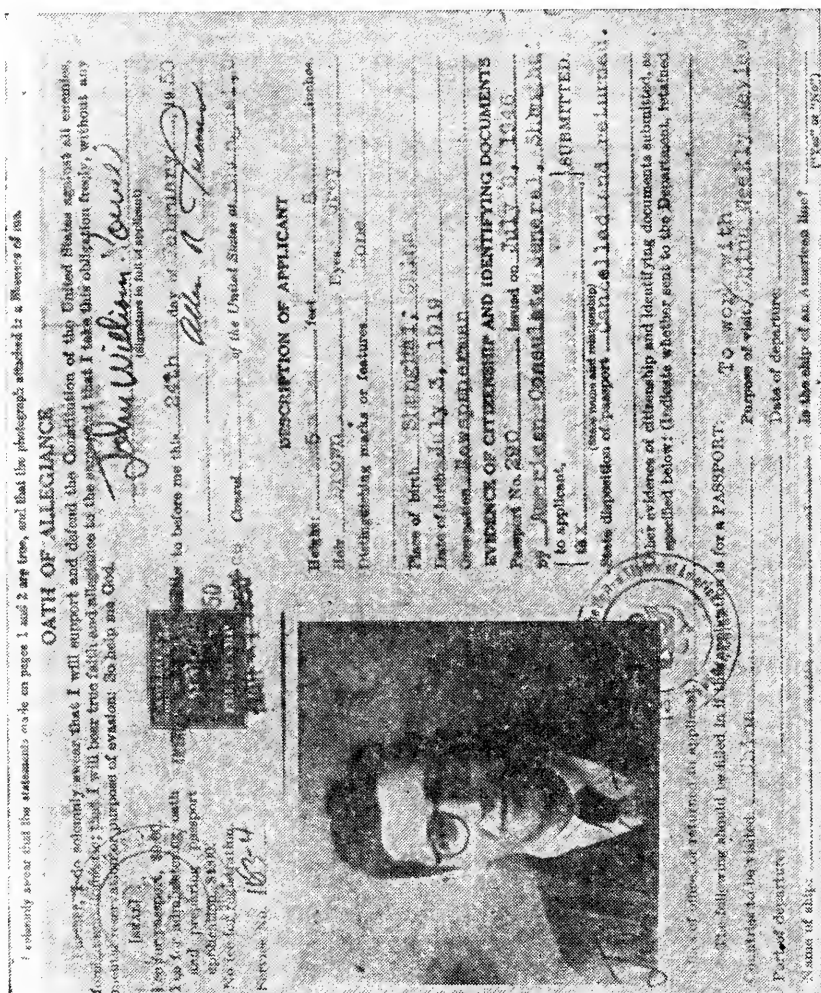 I solemnly swear that the statements made on pages 1 and 2 are true, and that the photograph attached is a likeness of me.
OATH OF ALLEGIANCE
Further, I do solemnly swear that I will support and defend the Constitution of the United States against all enemies,
foreign and domestic; that I will bear true faith and allegiance to the same; and that I take this obligation freely, without any
mental reservation or purpose of evasion: So help me God.
John William Powell
(Signature in full of applicant)
[SEAL]
Fee for passport, $9.00.
Fee for administering oath
and preparing passport
application, $1.00.
No fee for registration.
Service No. 1634
to before me this 24th day of February, 1950
Allen R
Consul of the United States at
DESCRIPTION OF APPLICANT
Height: feet inches
Hair Brown Eyes Grey
Distinguishing marks or features
None
Place of birth Shanghai, China
Date of birth July 3, 1919
Occupation Newspaperman
EVIDENCE OF CITIZENSHIP AND IDENTIFYING DOCUMENTS
Passport No. 290 issued on July 1946
by American Consulate General, Shanghai.
to applicant,
to X SUBMITTED.
(State name and relationship)
State disposition of passport Cancelled and returned.
Other evidence of citizenship and identifying documents submitted, as
specified below: (Indicate whether sent to the Department, retained
of office, or returned to applicant)
The following should be filled in if this application is for a PASSPORT.
Countries to be visited China
To work with
Purpose of visit China Weekly Review
Port of departure
Date of departure
Name of ship
Is the ship of an American line?
("Yes" or "No")